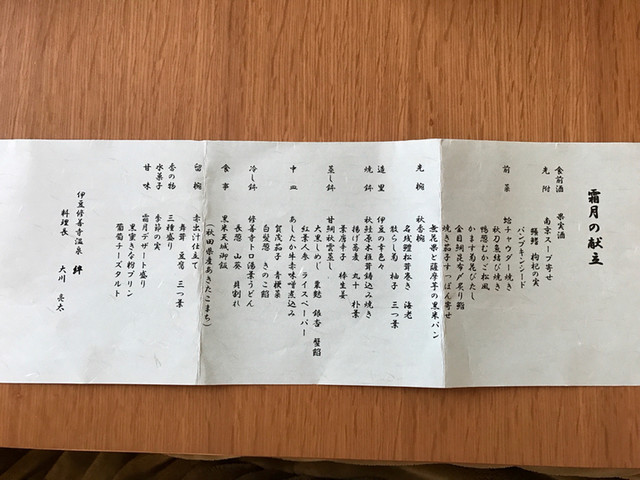 霜月の献立
食前酒　果実酒
先附　南京スープ寄せ
鱶鰭　枸杞の実
パンプキンシード
前菜　蛤チャウダー焼き
秋刀魚結び焼き
鴨葱むかご松風
かます菊花びたし
金目鯛昆布〆炙り鮨
焼き茄子すっぽん寄せ
無花果と薩摩芋の黒米パン
先椀　秋香
名残鱧松茸巻き　海老
散らし菊　柚子　三つ葉
造里　伊豆の幸色々
焼鉢　秋鮭原木椎茸鋳込み焼き
揚げ蕎麦　丸十　朴葉
葉唐辛子　棒生姜
蒸し鉢　甘鯛秋雲蒸し
大黒しめじ　粟麩　銀杏　蟹餡
紅葉人参　ライスペーパー
中皿　あしたか牛赤味噌煮込み
賀茂茄子　青梗菜
白髪葱　きのこ餡
冷し鉢　修善寺トロ湯葉うどん
長葱　山葵　貝割れ
食事　黒米天城御飯
(秋田県産あきたこまち)
留椀　赤出汁仕立て
舞茸　豆腐　三つ葉
香の物　三種盛り
水菓子　季節の実
甘味　霜月デザート盛り
黒蜜きな粉プリン
葡萄チーズタルト
伊豆修善寺温泉　絆
料理長　大川　英太